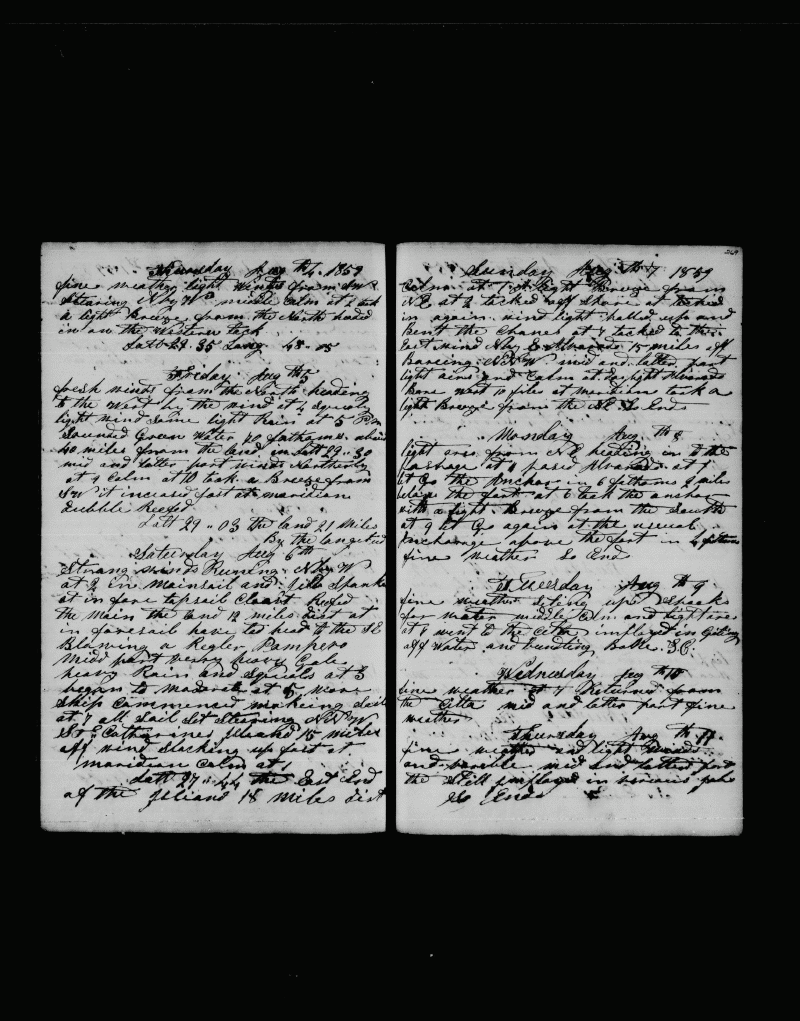 Thursday Aug th 4 1859
fine weather light winds from SW &
Stearing N by W middle Calm at 2 took
a light Breeze from the North headed
in on the Western tack
Latt 29 35 Long 48 - 05
Friday Aug th 5
fresh winds from the North heading
to the West by the wind at 4 squaly
light wind some light Rain at 5 PM
Sounded Green Water 70 fathoms about
40 miles from the land in Latt 29 - 30
mid and latter part winds Northerly
at 9 Calm at 10 took a Breeze from
SW it incresed fast at meridian
Dubble Reefed
Latt 29 - 03 the land 21 Miles
By the longitud
Saturday Aug 6th
Strong winds Running N by W
at 2 in Mainsail and Jibb Spanker
at in fore topsail Closest Reefed
the main the land 12 miles dist at
in foresail have too head to the SE
Blowing a Regler Pampero
Midd part verry heavy Gale
heavy Rain and Squals at 3
began to Moderate at 5 wore
Ship Commenced makeing Sail
at 7 all Sail Set Stearing N N W
St Catharines Island 15 miles
off wind slacking up fast at
meridian Calm at 1
Latt 27 - 44 the East End
of the Island 18 miles dist
269
Sunday Aug th 7 1859
Calm at 1 A light Breeze from
NE at 2 tacked off Shore at tacked
in again wind light halled up and
Bent the Chanes at 7 tacked to the
East Wind N by E 15 miles off
Bareing NNW mid and latter part
light airs and Calm at light
Bore West 10 Miles at meridian took a
light Breeze from the NE So Ends
Monday Aug th 8
light ares from NE heading in to the
Pasage at 4 pased at 5
let Go the Anchor in 6 fathoms 2 miles
below the fort at 6 took the anchor
with a light Breeze from the South
at 9 let Go again at the usual
Anchorage above the fort in 4 fathoms
fine weather So End
Tuesday Aug th 9
fine weather up Spoke
for water middle Calm and light ares
at 1 went to the Citta imployed in Giting
off Water and Boate &C
Wednesday Aug th 10
fine weather at 7 Returned from
the Citta mid and later part fine
weather
Thursday Aug th 11
fine weather and light winds
and varible mid and latter part
the Still imployed in various jobs
So Ends